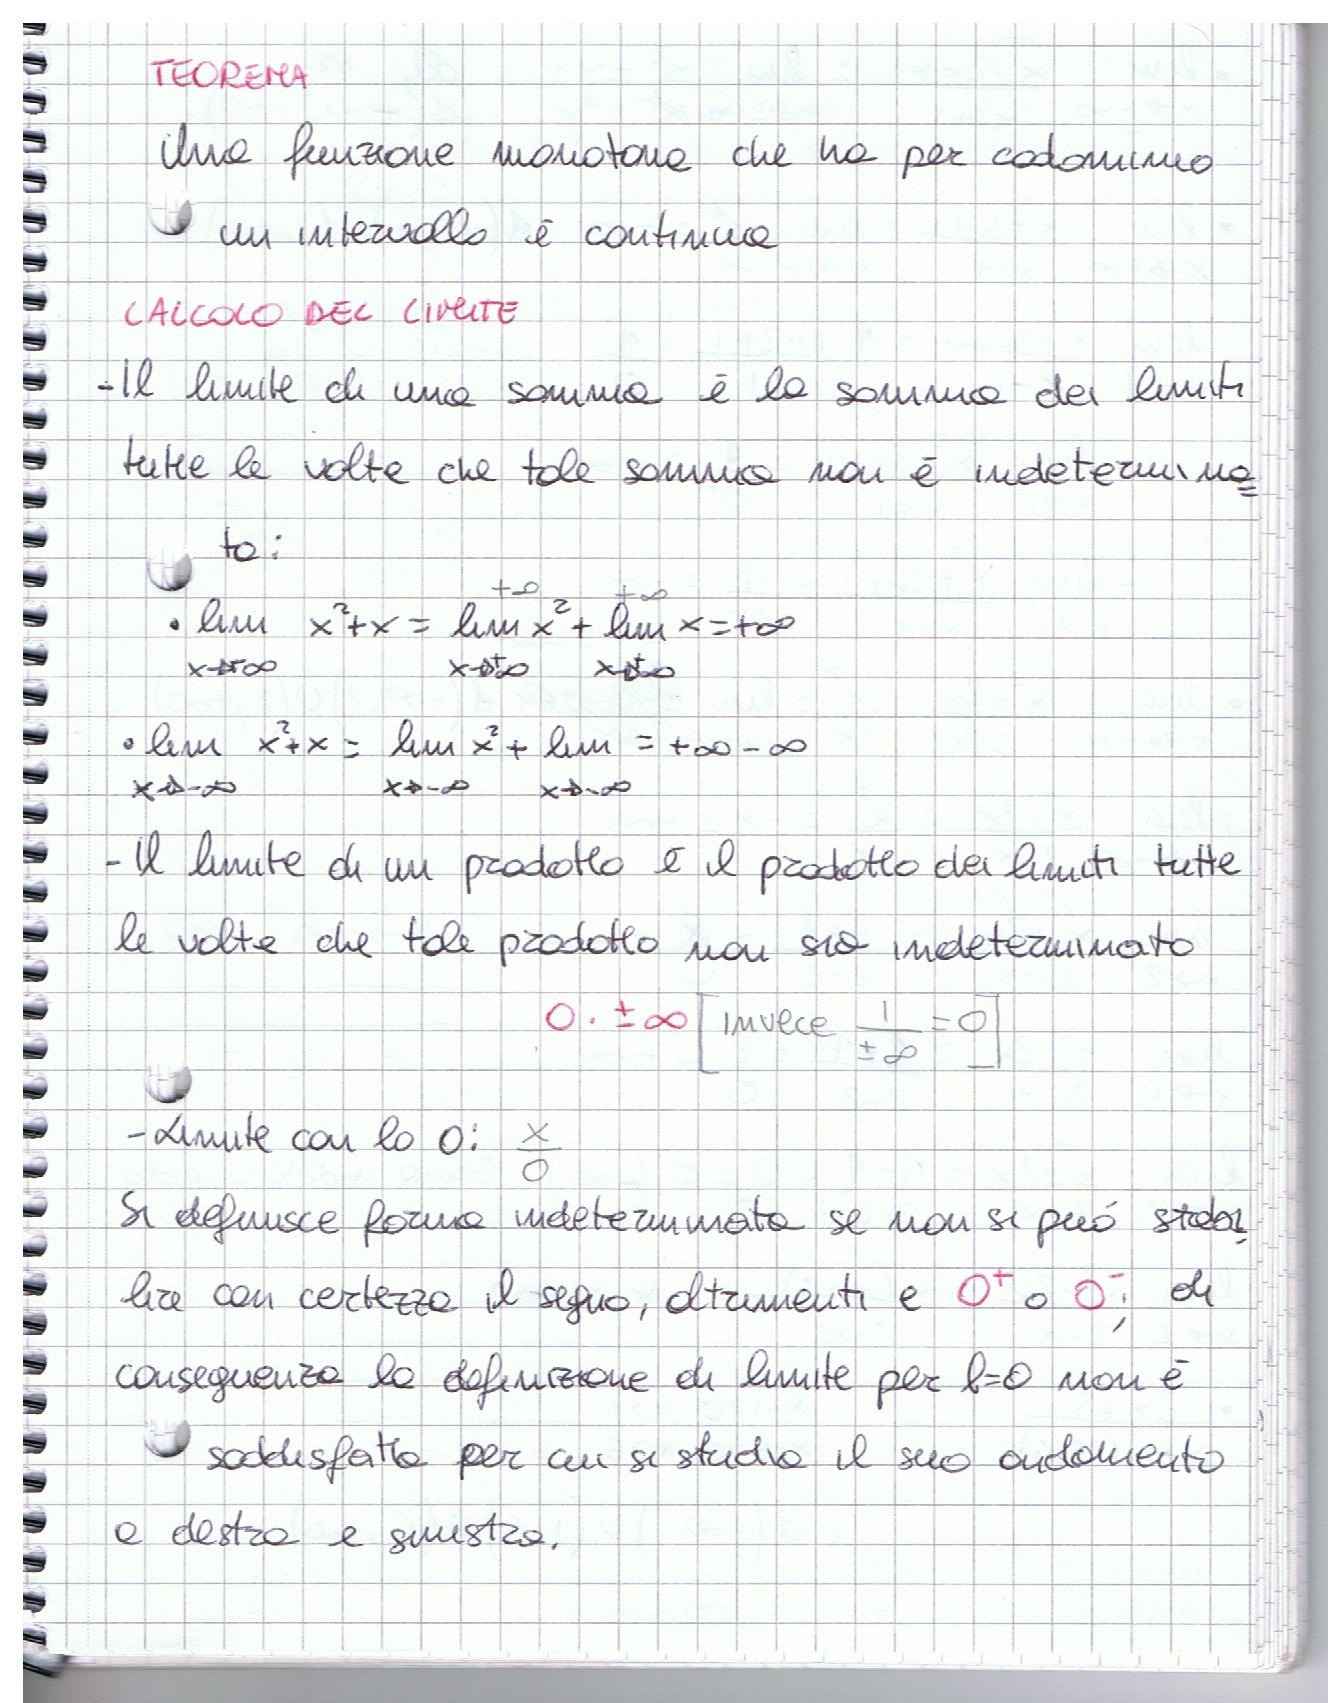 TEOREMA
Una funzione monotona che ha per codominio
un intervallo è continua
CALCOLO DEL LIMITE
- Il limite di una somma è la somma dei limiti
tutte le volte che tale somma non è indetermina=
ta:
+∞ +∞
• lim x²+x = lim x² + lim x = +∞
x→+∞ x→+∞ x→+∞
• lim x²+x = lim x² + lim = +∞ - ∞
x→-∞ x→-∞ x→-∞
- Il limite di un prodotto è il prodotto dei limiti tutte
le volte che tale prodotto non sia indeterminato
0 · ±∞ [invece 1/±∞ = 0]
- Limite con lo 0: x/0
Si definisce forma indeterminata se non si può stabi
lire con certezza il segno, altrimenti e 0⁺ o 0⁻; di
conseguenza la definizione di limite per l=0 non è
soddisfatta per cui si studia il suo andamento
a destra e sinistra.